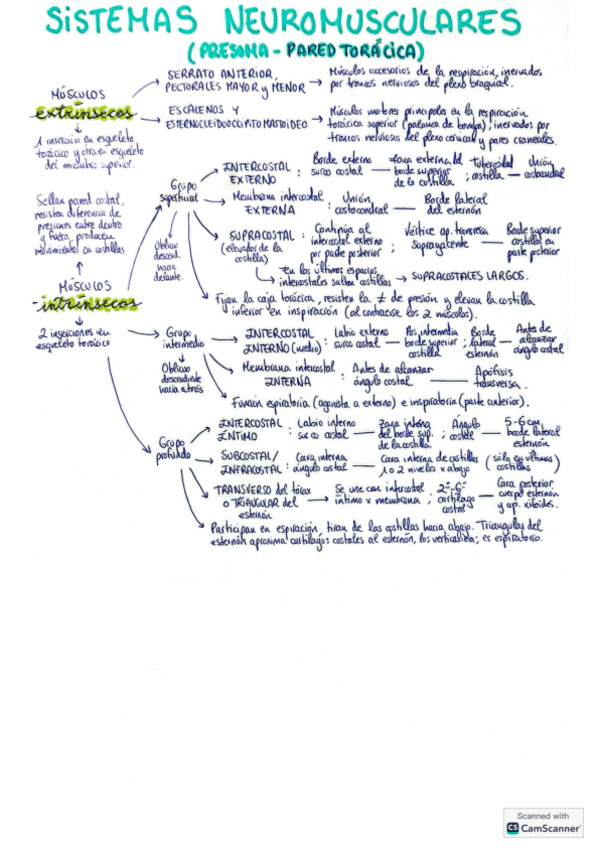 SISTEMAS NEUROMUSCULARES
(PRESOMA - PARED TORÁCICA)
MÚSCULOS
extrínsecos
1 inserción en esqueleto
torácico y otra en esqueleto
del miembro superior.
SERRATO ANTERIOR,
PECTORALES MAYOR y MENOR
Músculos accesorios de la respiración, inervados
por troncos nerviosos del plexo braquial.
ESCALENOS Y
ESTERNOCLEIDOOCCIPITOMASTOIDEO
Músculos motores principales en la respiración
torácica superior (palanca de bomba), inervados por
troncos nerviosos del plexo cervical y pares craneales.
Sellan pared costal,
resisten diferencia de
presiones entre dentro
y fuera, producen
movimientos en costillas
MÚSCULOS
intrínsecos
2 inserciones en
esqueleto torácico
Grupo
superficial
Oblicuo
descend.
hacia
delante.
INTERCOSTAL
EXTERNO
: Borde externo
surco costal
Zona externa del
borde superior
de la costilla
; Tuberosidad
costilla
Unión
costocondral
Membrana intercostal
EXTERNA
: Unión
costocondral
Borde lateral
del esternón
SUPRACOSTAL
(elevador de la
costilla)
: Continúa al
intercostal externo
por parte posterior
; Vértice ap. transversa
Suprayacente
Borde superior
costilla en
parte posterior
En los últimos espacios
intercostales saltan costillas
SUPRACOSTALES LARGOS.
Fijan la caja torácica, resisten la ≠ de presión y elevan la costilla
inferior en inspiración (al contraerse los 2 músculos).
Grupo
intermedio
Oblicuo
descendente
hacia atrás
INTERCOSTAL
INTERNO (medio)
: Labio externo
surco costal
Pos. intermedia
borde superior
costilla
; Borde
lateral
esternón
Antes de
alcanzar
ángulo costal
Membrana intercostal
INTERNA
: Antes de alcanzar
ángulo costal
Apófisis
transversa.
Función espiratoria (agonista a externo) e inspiratoria (parte anterior).
Grupo
profundo
INTERCOSTAL
ÍNTIMO
: Labio interno
surco costal
Zona interna
del borde sup.
de la costilla
; Ángulo
costilla
5-6cm
borde lateral
esternón
SUBCOSTAL/
INFRACOSTAL
: Cara interna
ángulo costal
Cara interna de costillas
1 o 2 niveles x abajo
(sólo en últimas
costillas)
TRANSVERSO del tórax
o TRIANGULAR del
esternón
Se une con intercostal
íntimo x membrana
; 2º-6º
cartílago
costal
Cara posterior
cuerpo esternón
y ap. xifoides.
Participan en espiración, tiran de las costillas hacia abajo. Triangular del
esternón aproxima cartílagos costales al esternón, los verticaliza; es espiratorio.
Scanned with
CS CamScanner